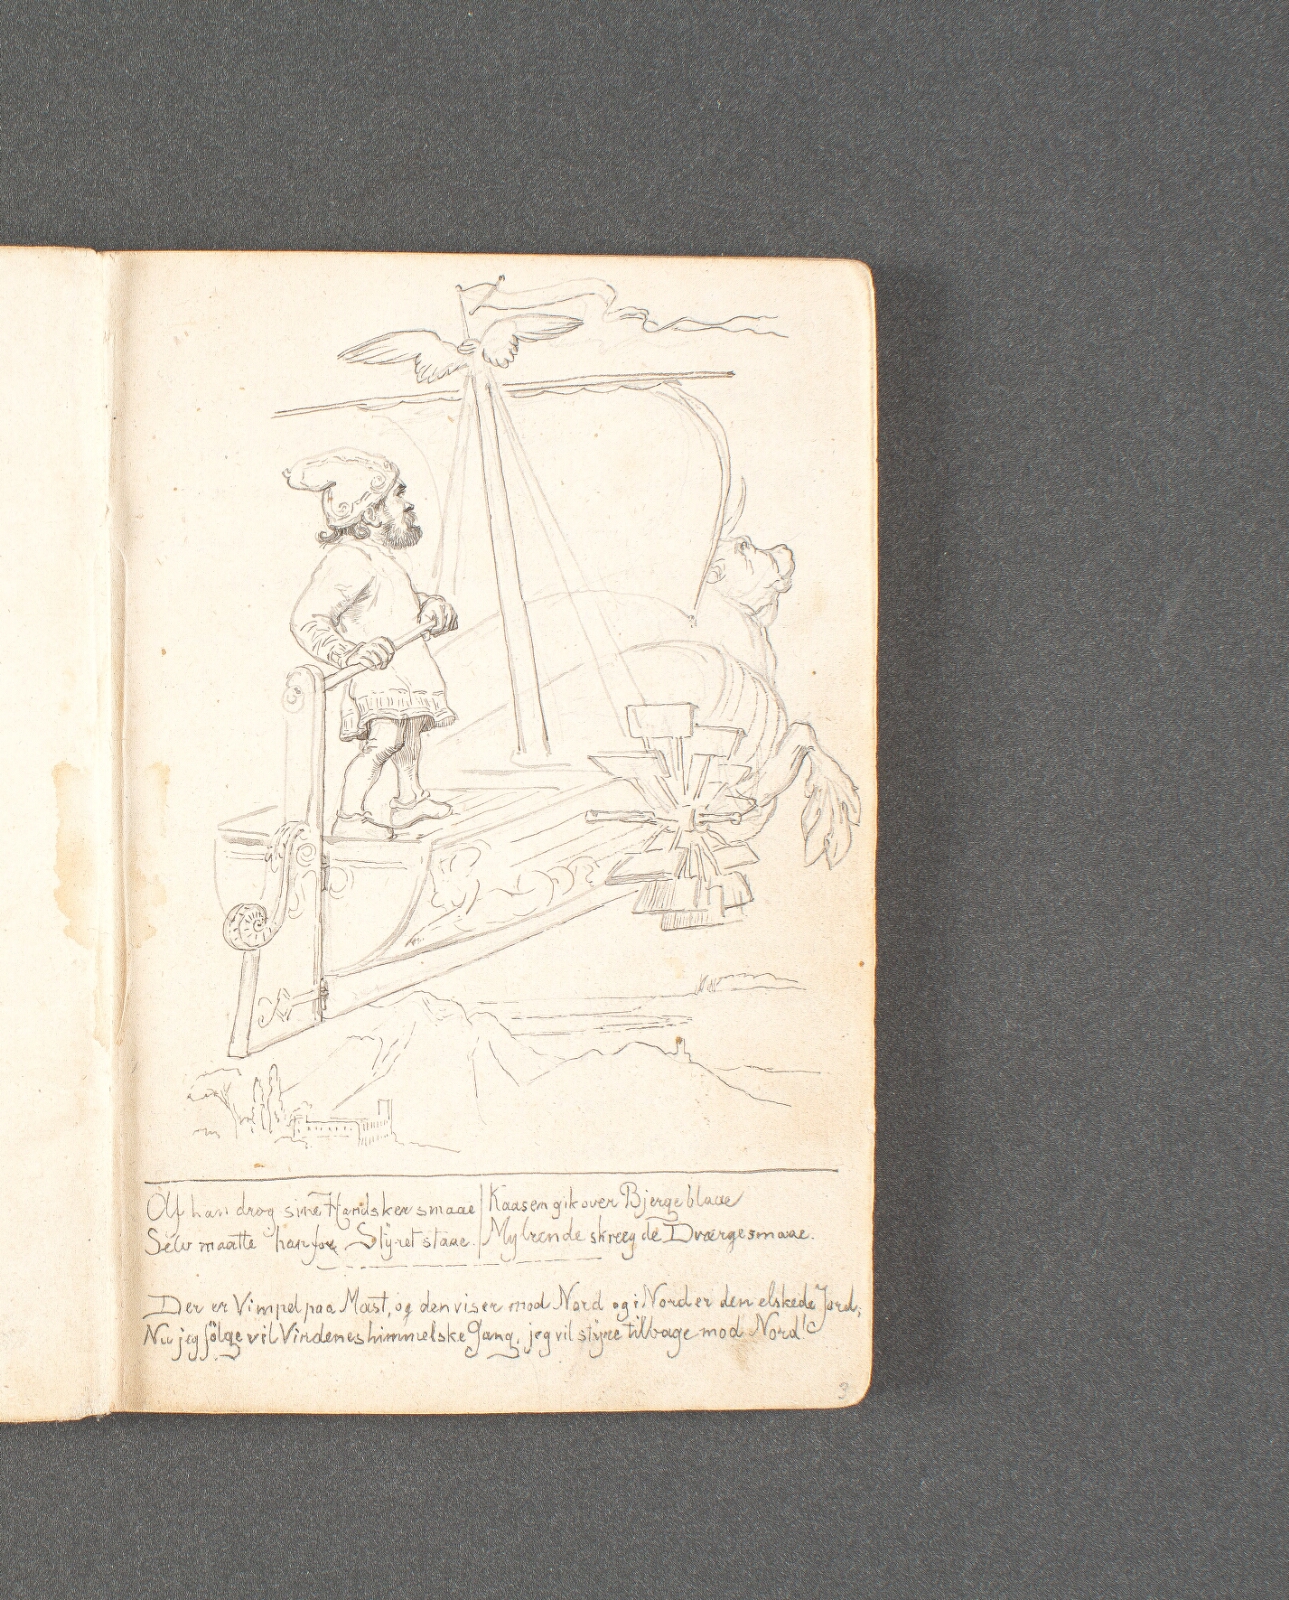 Af han drog sine Handsker smaae / Kaasen gik over Bjerge blaae
Selv maatte han for Styret staae. / Mylrende skreeg de Dværge smaae.
Der er Vimpel paa Mast, og den viser mod Nord og i Nord er den elskede Jord;
Nu jeg følge vil Vindenes himmelske Gang, jeg vil styre tilbage mod Nord!
3